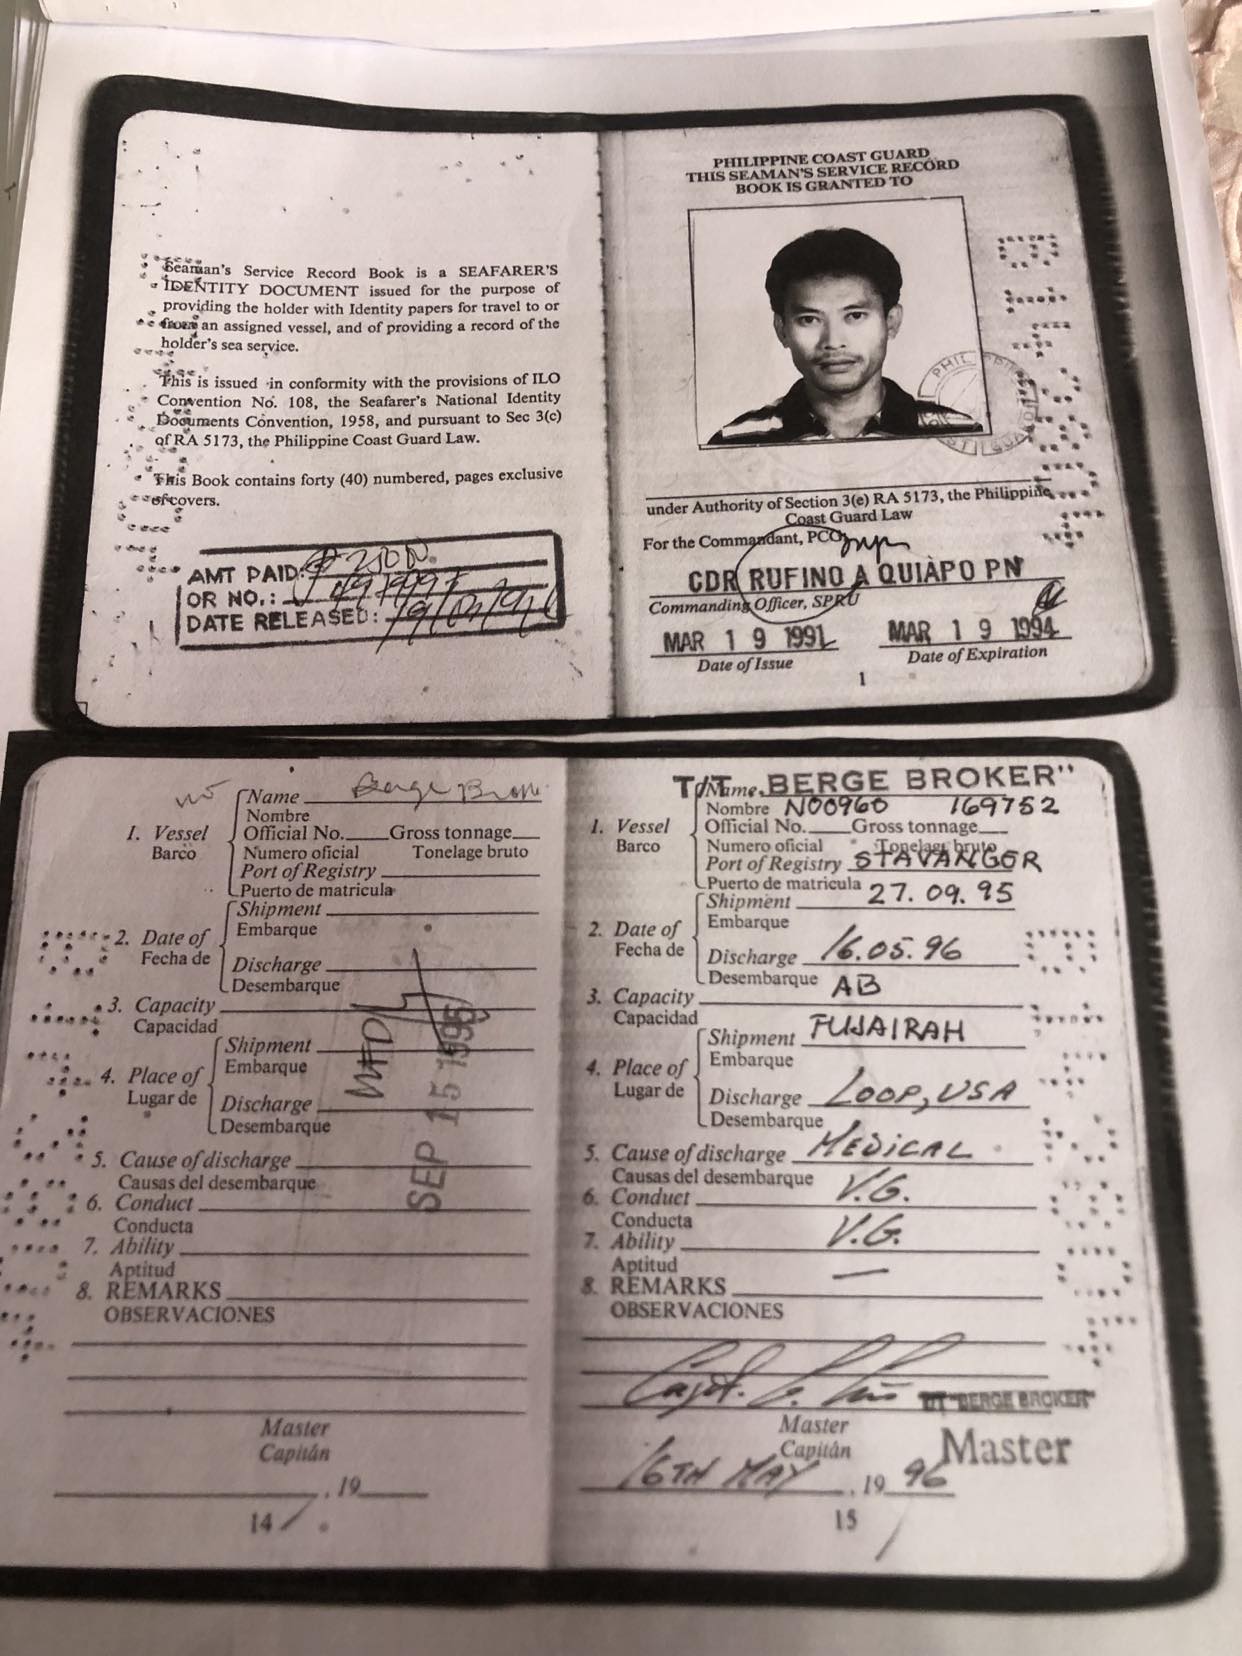 Seaman's Service Record Book is a SEAFARER'S
IDENTITY DOCUMENT issued for the purpose of
providing the holder with Identity papers for travel to or
from an assigned vessel, and of providing a record of the
holder's sea service.
This is issued in conformity with the provisions of ILO
Convention No. 108, the Seafarer's National Identity
Documents Convention, 1958, and pursuant to Sec 3(c)
of RA 5173, the Philippine Coast Guard Law.
This Book contains forty (40) numbered, pages exclusive
of covers.
AMT PAID:
OR NO.:
DATE RELEASED:
PHILIPPINE COAST GUARD
THIS SEAMAN'S SERVICE RECORD
BOOK IS GRANTED TO
under Authority of Section 3(e) RA 5173, the Philippine
Coast Guard Law
For the Commandant, PCG
CDR RUFINO A QUIAPO PN
Commanding Officer, SPRU
MAR 19 1991 MAR 19 1994
Date of Issue Date of Expiration
1
Name Berge
Nombre
1. Vessel Official No. Gross tonnage
Barco Numero oficial Tonelage bruto
Port of Registry
Puerto de matricula
Shipment
2. Date of Embarque
Fecha de Discharge
Desembarque
3. Capacity
Capacidad
Shipment
4. Place of Embarque
Lugar de Discharge
Desembarque
5. Cause of discharge
Causas del desembarque
6. Conduct
Conducta
7. Ability
Aptitud
8. REMARKS
OBSERVACIONES
SEP 15 1995
Master
Capitán
, 19
14
T/T "BERGE BROKER"
Name
Nombre N00960 169752
1. Vessel Official No. Gross tonnage
Barco Numero oficial Tonelage bruto
Port of Registry STAVANGER
Puerto de matricula
Shipment 27.09.95
2. Date of Embarque
Fecha de Discharge 16.05.96
Desembarque
3. Capacity AB
Capacidad
Shipment FUJAIRAH
4. Place of Embarque
Lugar de Discharge LOOP, USA
Desembarque
5. Cause of discharge MEDICAL
Causas del desembarque
6. Conduct V.G.
Conducta
7. Ability V.G.
Aptitud
8. REMARKS —
OBSERVACIONES
Capt.
T/T "BERGE BROKER"
Master
Capitán
Master
16TH MAY , 19 96
15